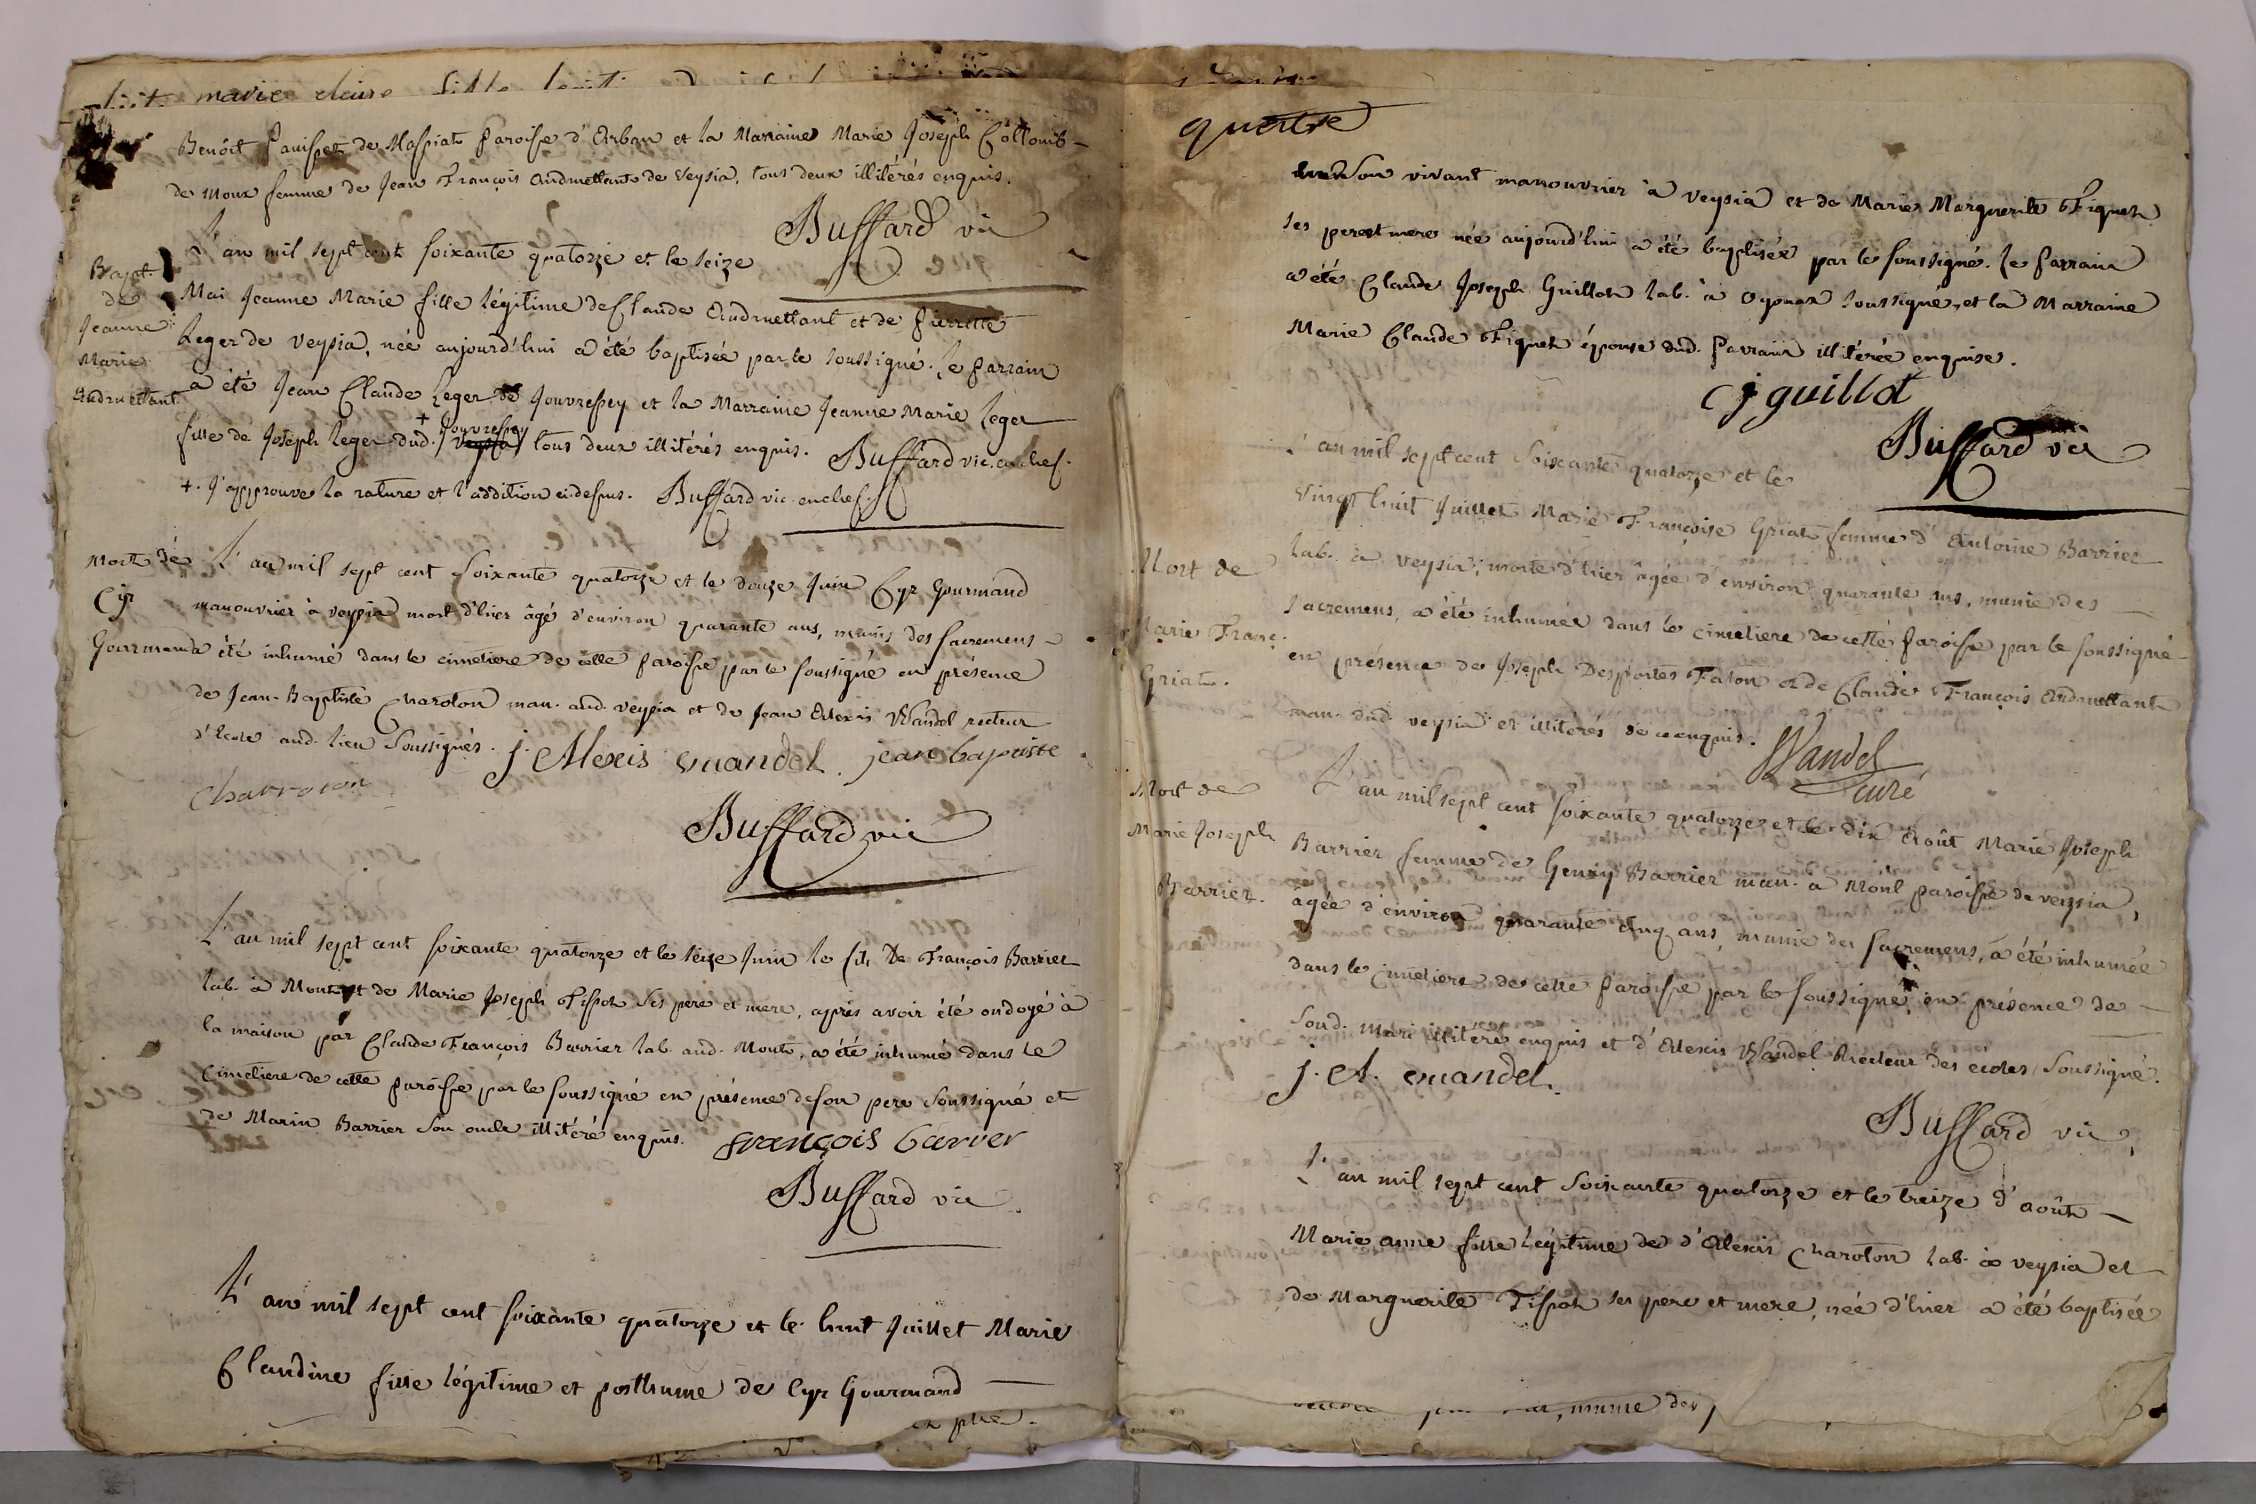 marie claire fille legit
Benôit de Massiat Paroisse d'Arban et la Marraine Marie Joseph Collomb
de Moux femme de Jean François Andruettant de Veysia, tous deux illitérés enquis.
Buffard vic
Bapt
de
Jeanne
Marie
Andruettant
L'an mil sept cent soixante quatorze et le seize
Mai Jeanne Marie fille légitime de Claude Andruettant et de Pierrette
Leger de Veysia, née aujourd'hui a été baptisée par le soussigné. Le parrain
a été Jean Claude Leger de Jouvressey et la Marraine Jeanne Marie Leger
+ Jouvressey
fille de Joseph Leger dud. veysia tous deux illitérés enquis. Buffard vic. en chef.
+. J'approuve la rature et l'addition ci dessus. Buffard vic. en chef.
Mort de
Cyr
Gourmand
L'an mil sept cent soixante quatorze et le douze Juin Cyr Gourmand
manouvrier à veysia mort d'hier âgé d'environ quarante ans, munis des sacremens
a été inhumé dans le cimetiere de cette paroisse par le soussigné en présence
de Jean-Baptiste Charoton man. aud. veysia et de Jean Alexis Vandel recteur
d'école aud. lieu soussignés. j. Alexis vuandel. jean bapiste
charroton
Buffard vic
L'an mil sept cent soixante quatorze et le seize Juin le fils de François Barrier
lab. à Mont et de Marie Joseph Tissot ses pere et mere, après avoir été ondoyé à
la maison par Claude François Barrier lab. aud. Mont, a été inhumé dans le
cimetiere de cette paroisse par le soussigné en présence de son pere soussigné et
de Marin Barrier son oncle illitéré enquis. françois barier
Buffard vic
L'an mil sept cent soixante quatorze et le huit Juillet Marie
Claudine fille légitime et posthume de Cyr Gourmand
quatre
son vivant manouvrier à veysia et de Marie Marguerite Fiquet
ses pere et mere née aujourd'hui a été baptisée par le soussigné. le parrain
a été Claude Joseph Guillot lab. à Oyonax soussigné, et la Marraine
Marie Claude Fiquet épouse dud. Parrain illitérée enquise.
Cj guillot
Buffard vic
L'an mil sept cent soixante quatorze et le
Mort de
Marie Franç.
Griat.
vingt huit Juillet Marie Françoise Griat femme d'Antoine Barrier
lab. à veysia, morte d'hier âgée d'environ quarante ans, munie des
sacremens, a été inhumée dans le cimetiere de cette paroisse par le soussigné
en présence de Joseph Desportes Faton et de Claude François Andruettant
man. dud. veysia et illitérés de ce enquis.
Vandel
curé
Mort de
Marie Joseph
Barrier.
L'an mil sept cent soixante quatorze et le dix Août Marie Joseph
Barrier femme de Genix Barrier man. à Mont paroisse de veysia,
âgée d'environ quarante cinq ans, munie des sacremens, a été inhumée
dans le cimetiere de cette paroisse par le soussigné, en présence de
soud. mari illitéré enquis et d'Alexis Vandel Recteur des écoles soussigné.
j. A. vuandel.
Buffard vic
L'an mil sept cent soixante quatorze et le treize d'août
Marie anne fille légitime de d'Alexis Charoton lab. à veysia et
de Marguerite Tissot ses pere et mere, née d'hier a été baptisée
munie des